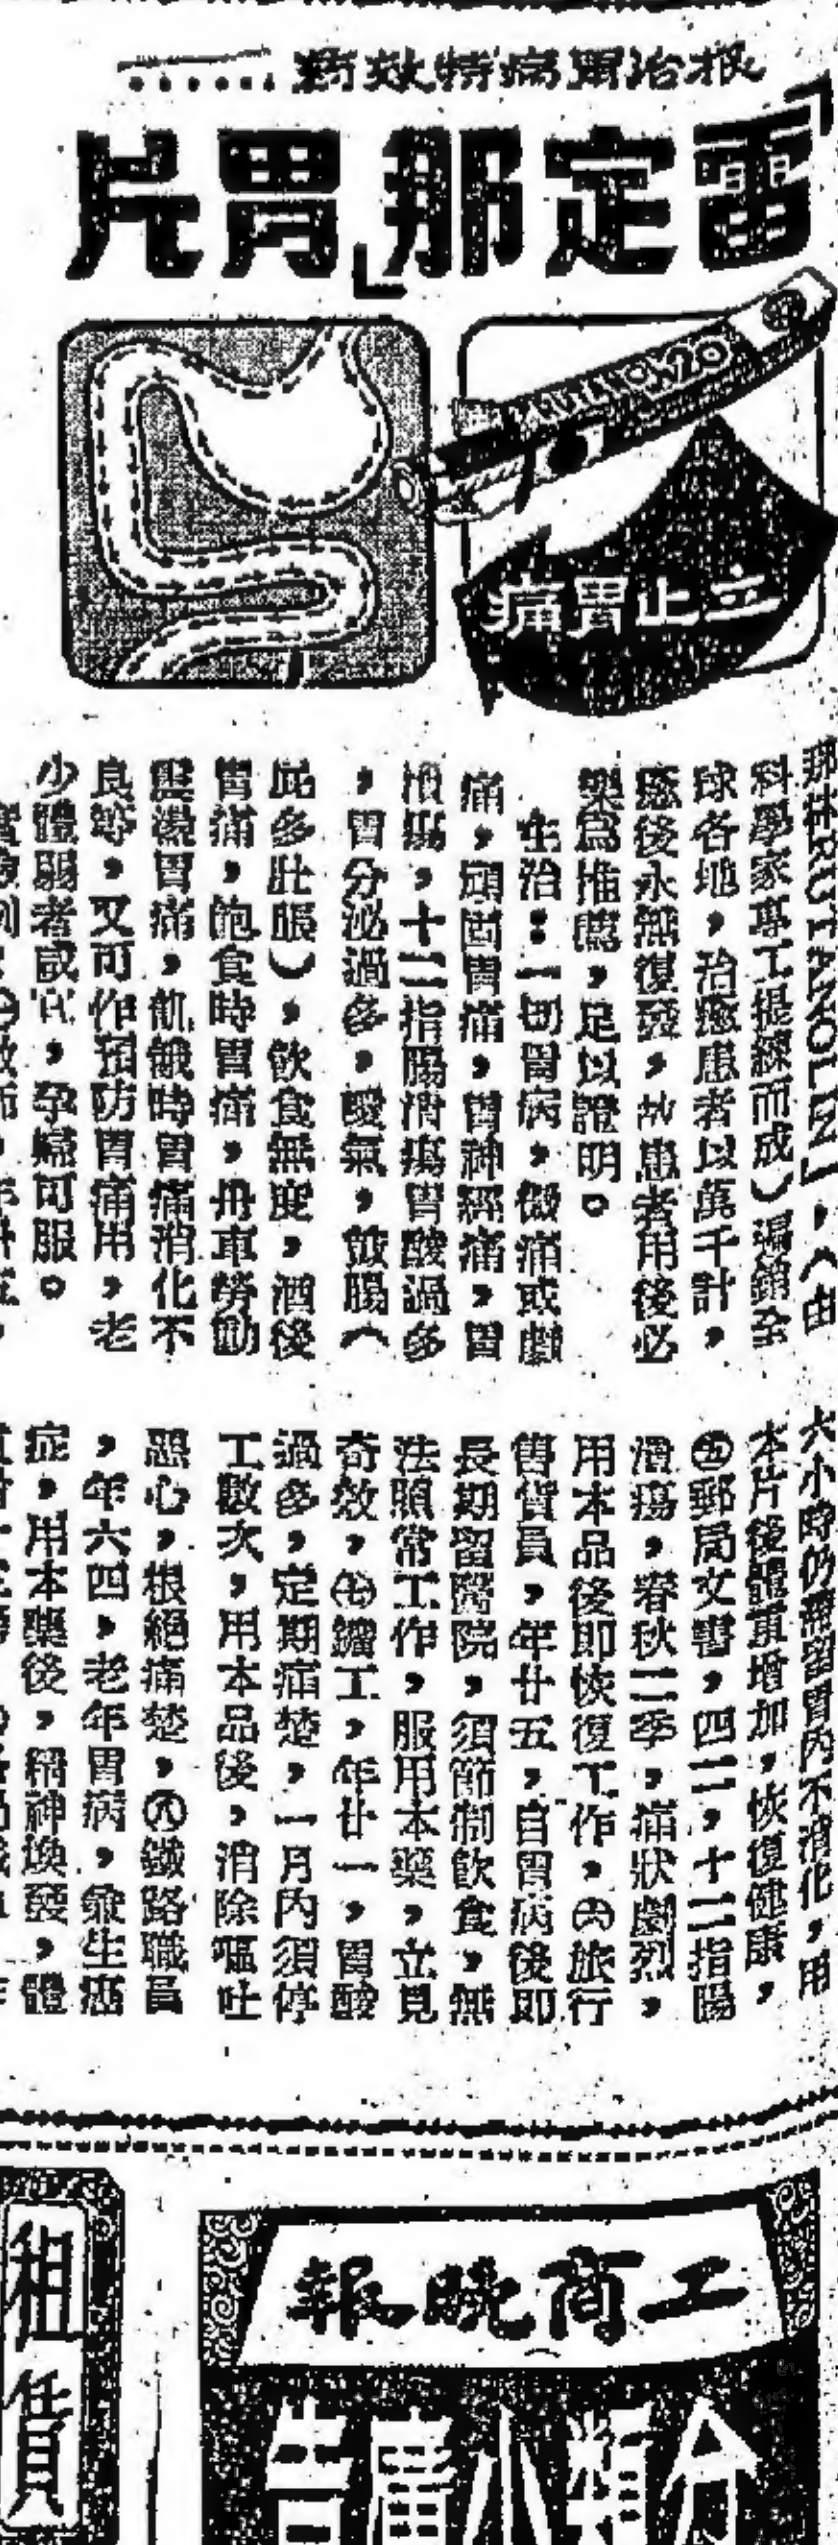 根治胃病特效葯……
「雷定那」胃片
立止胃痛
科學家專工提練而成）塲銷全
球各地，治癒患者以萬千計，
癒後永無復發，故患者用後必
樂為推薦，足以證明。
主治：一切胃病，微痛或劇
痛，頑固胃痛，胃神經痛，胃
潰瘍，十二指腸潰瘍胃酸過多
，胃分泌過多，噯氣，皷腸（
屁多肚脹），飲食無度，酒後
胃痛，飽食時胃痛，舟車勞動
震盪胃痛，飢餓時胃痛消化不
良等，又可作預防胃痛用，老
少體弱者或　，孕婦可服。
六小時仍需留胃內不消化，用
本片後體重增加，恢復健康，
㊄郵局文書，四二，十二指腸
潰瘍，春秋二季，痛狀劇烈，
用本品後即恢復工作，㊅旅行
售貨員，年廿五，自胃病後即
長期留醫院，須節制飲食，無
法照常工作，服用本藥，立見
奇效，㊆鑛工，年廿一，胃酸
過多，定期痛楚，一月內須停
工數次，用本品後，消除嘔吐
惡心，根絕痛楚，㊇鐵路職員
，年六四，老年胃病，兼生癌
症，用本藥後，精神煥發，體
工商晚報
分類小廣告
租賃